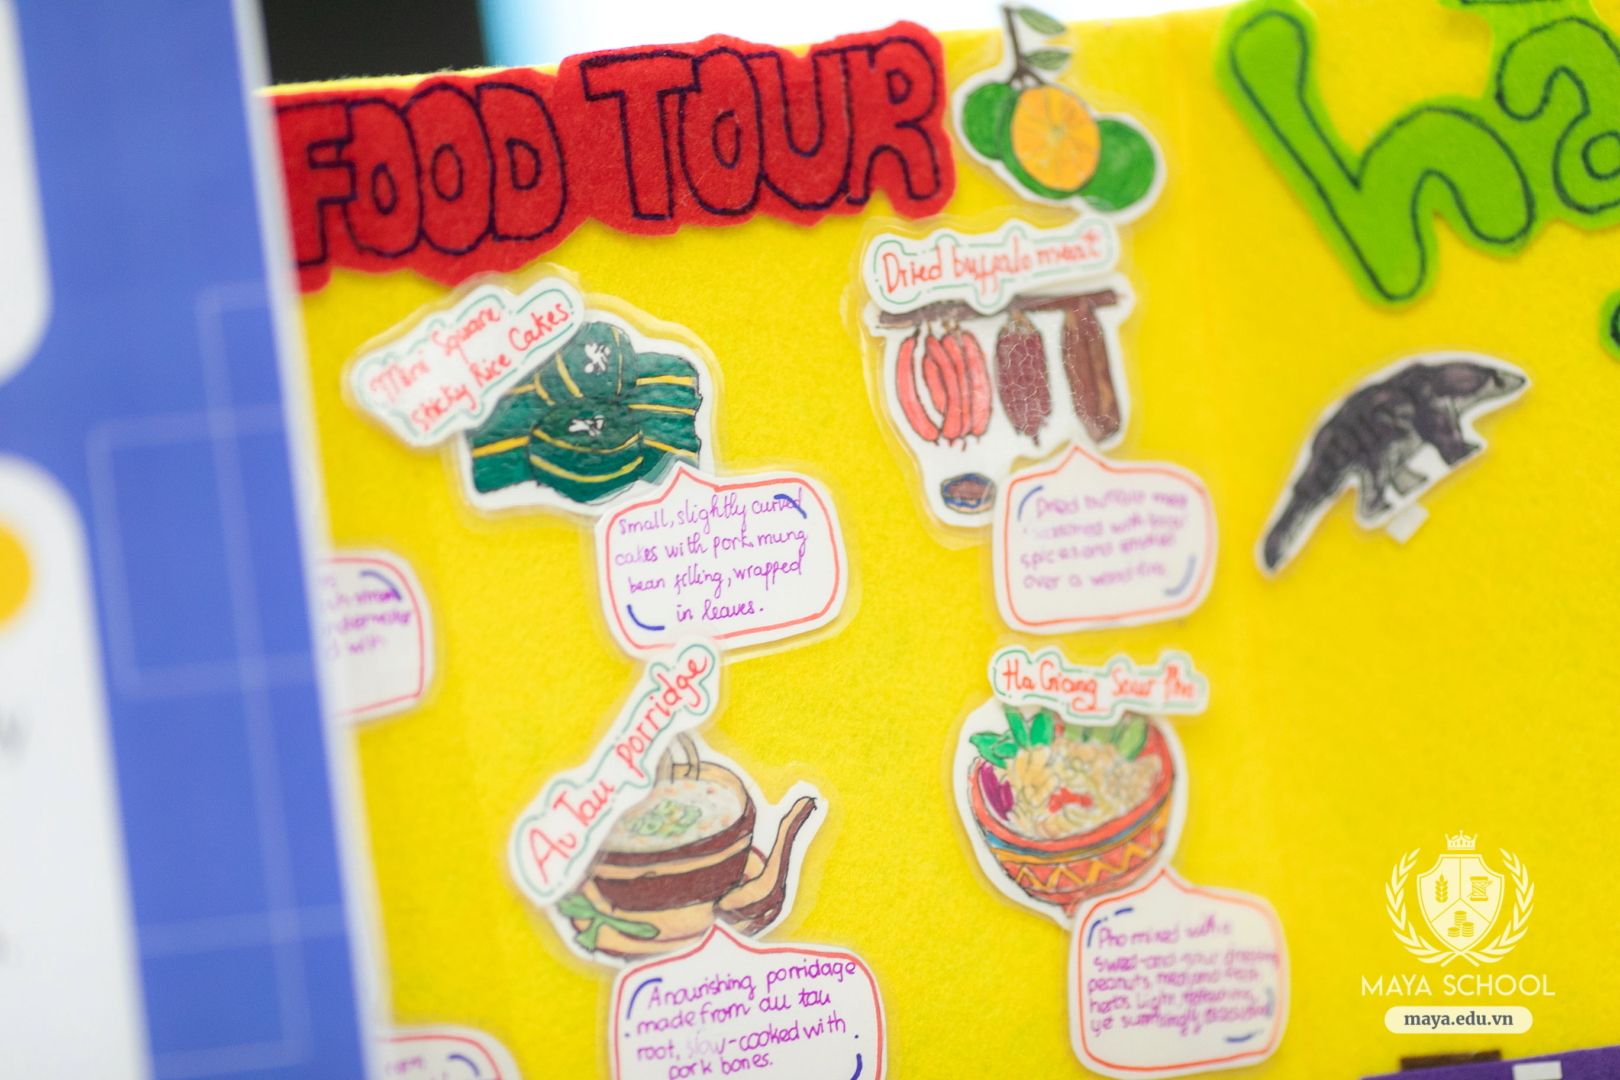 FOOD TOUR
hà
Mini Square
Sticky Rice Cakes
Small, slightly curved
cakes with pork, mung
bean filling, wrapped
in leaves.
Dried buffalo meat
Dried buffalo meat
seasoned with local
spices and smoked
over a wood fire.
Au Tau porridge
A nourishing porridage
made from au tau
root, slow-cooked with
pork bones.
Ha Giang Sour Pho
Pho mixed with a
sweet-and-sour dressing
peanuts, meat and fresh
herbs. Light, refreshing,
MAYA SCHOOL
maya.edu.vn